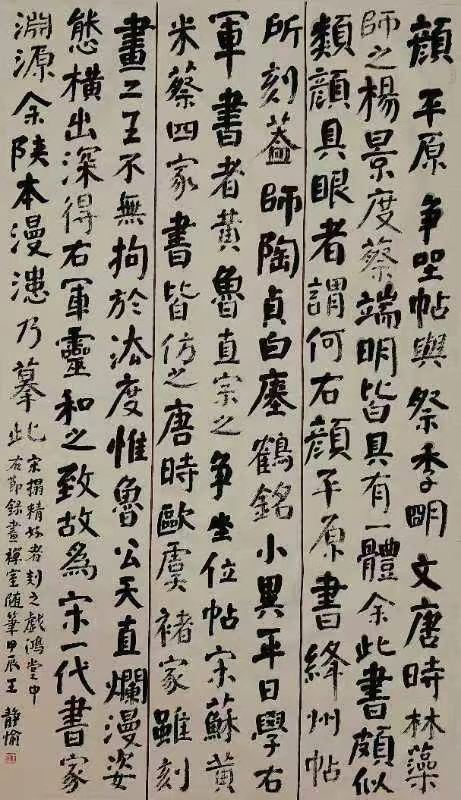 顏平原争坐帖與祭季明文唐時林藻
師之楊景度蔡端明皆具有一體余此書頗似
類顏具眼者謂何右顏平原書絳州帖
所刻蓋師陶貞白瘞鶴銘小異平日學右
軍書者黃魯直宗之争坐位帖宋蘇黃
米蔡四家書皆仿之唐時歐虞褚家雖刻
畫二王不無拘於法度惟魯公天直爛漫姿
態橫出深得右軍靈和之致故為宋一代書家
淵源余陝本漫漶乃摹此
宋搨精好者刻之戲鴻堂中
右節錄畫禪室隨筆甲辰王靜愉